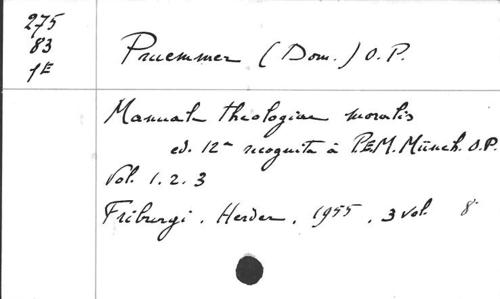 275
83
1E
Pruemmer (Dom.) O.P.
Manuale theologiae moralis
ed. 12a recognita à P.E.M. Münch. O.P.
Vol. 1. 2. 3
Friburgi. Herder. 1955. 3 vol. 8°